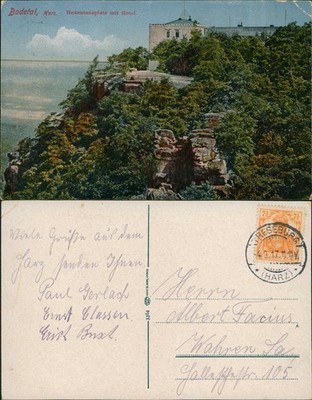 Bodetal, Harz. Hexentanzplatz mit Hotel
Viele Grüße aus dem
Harz senden Ihnen
Paul Gerlach
Ernst Classen
Erich
TRESEBURG
(HARZ)
Herrn
Albert Facius,
Wahren Sa,
Hallesche str. 105